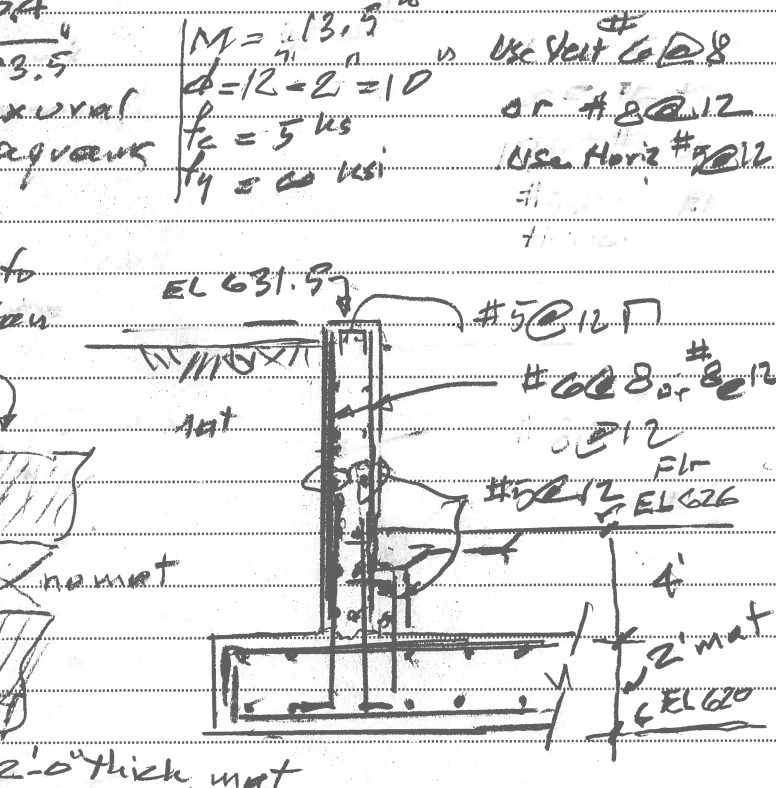 3.5
M = 13.5
d = 12 - 2" = 10"
f'c = 5 ks
fy = 60 ksi
Use Vert #6@8
or #8@12
Use Horiz #5@12
to
EL 631.5
#5@12
#6@8 or #8@12
@12
#5@12
Flr
EL 626
4'
no mat
2' mat
EL 620
2'-0" thick mat